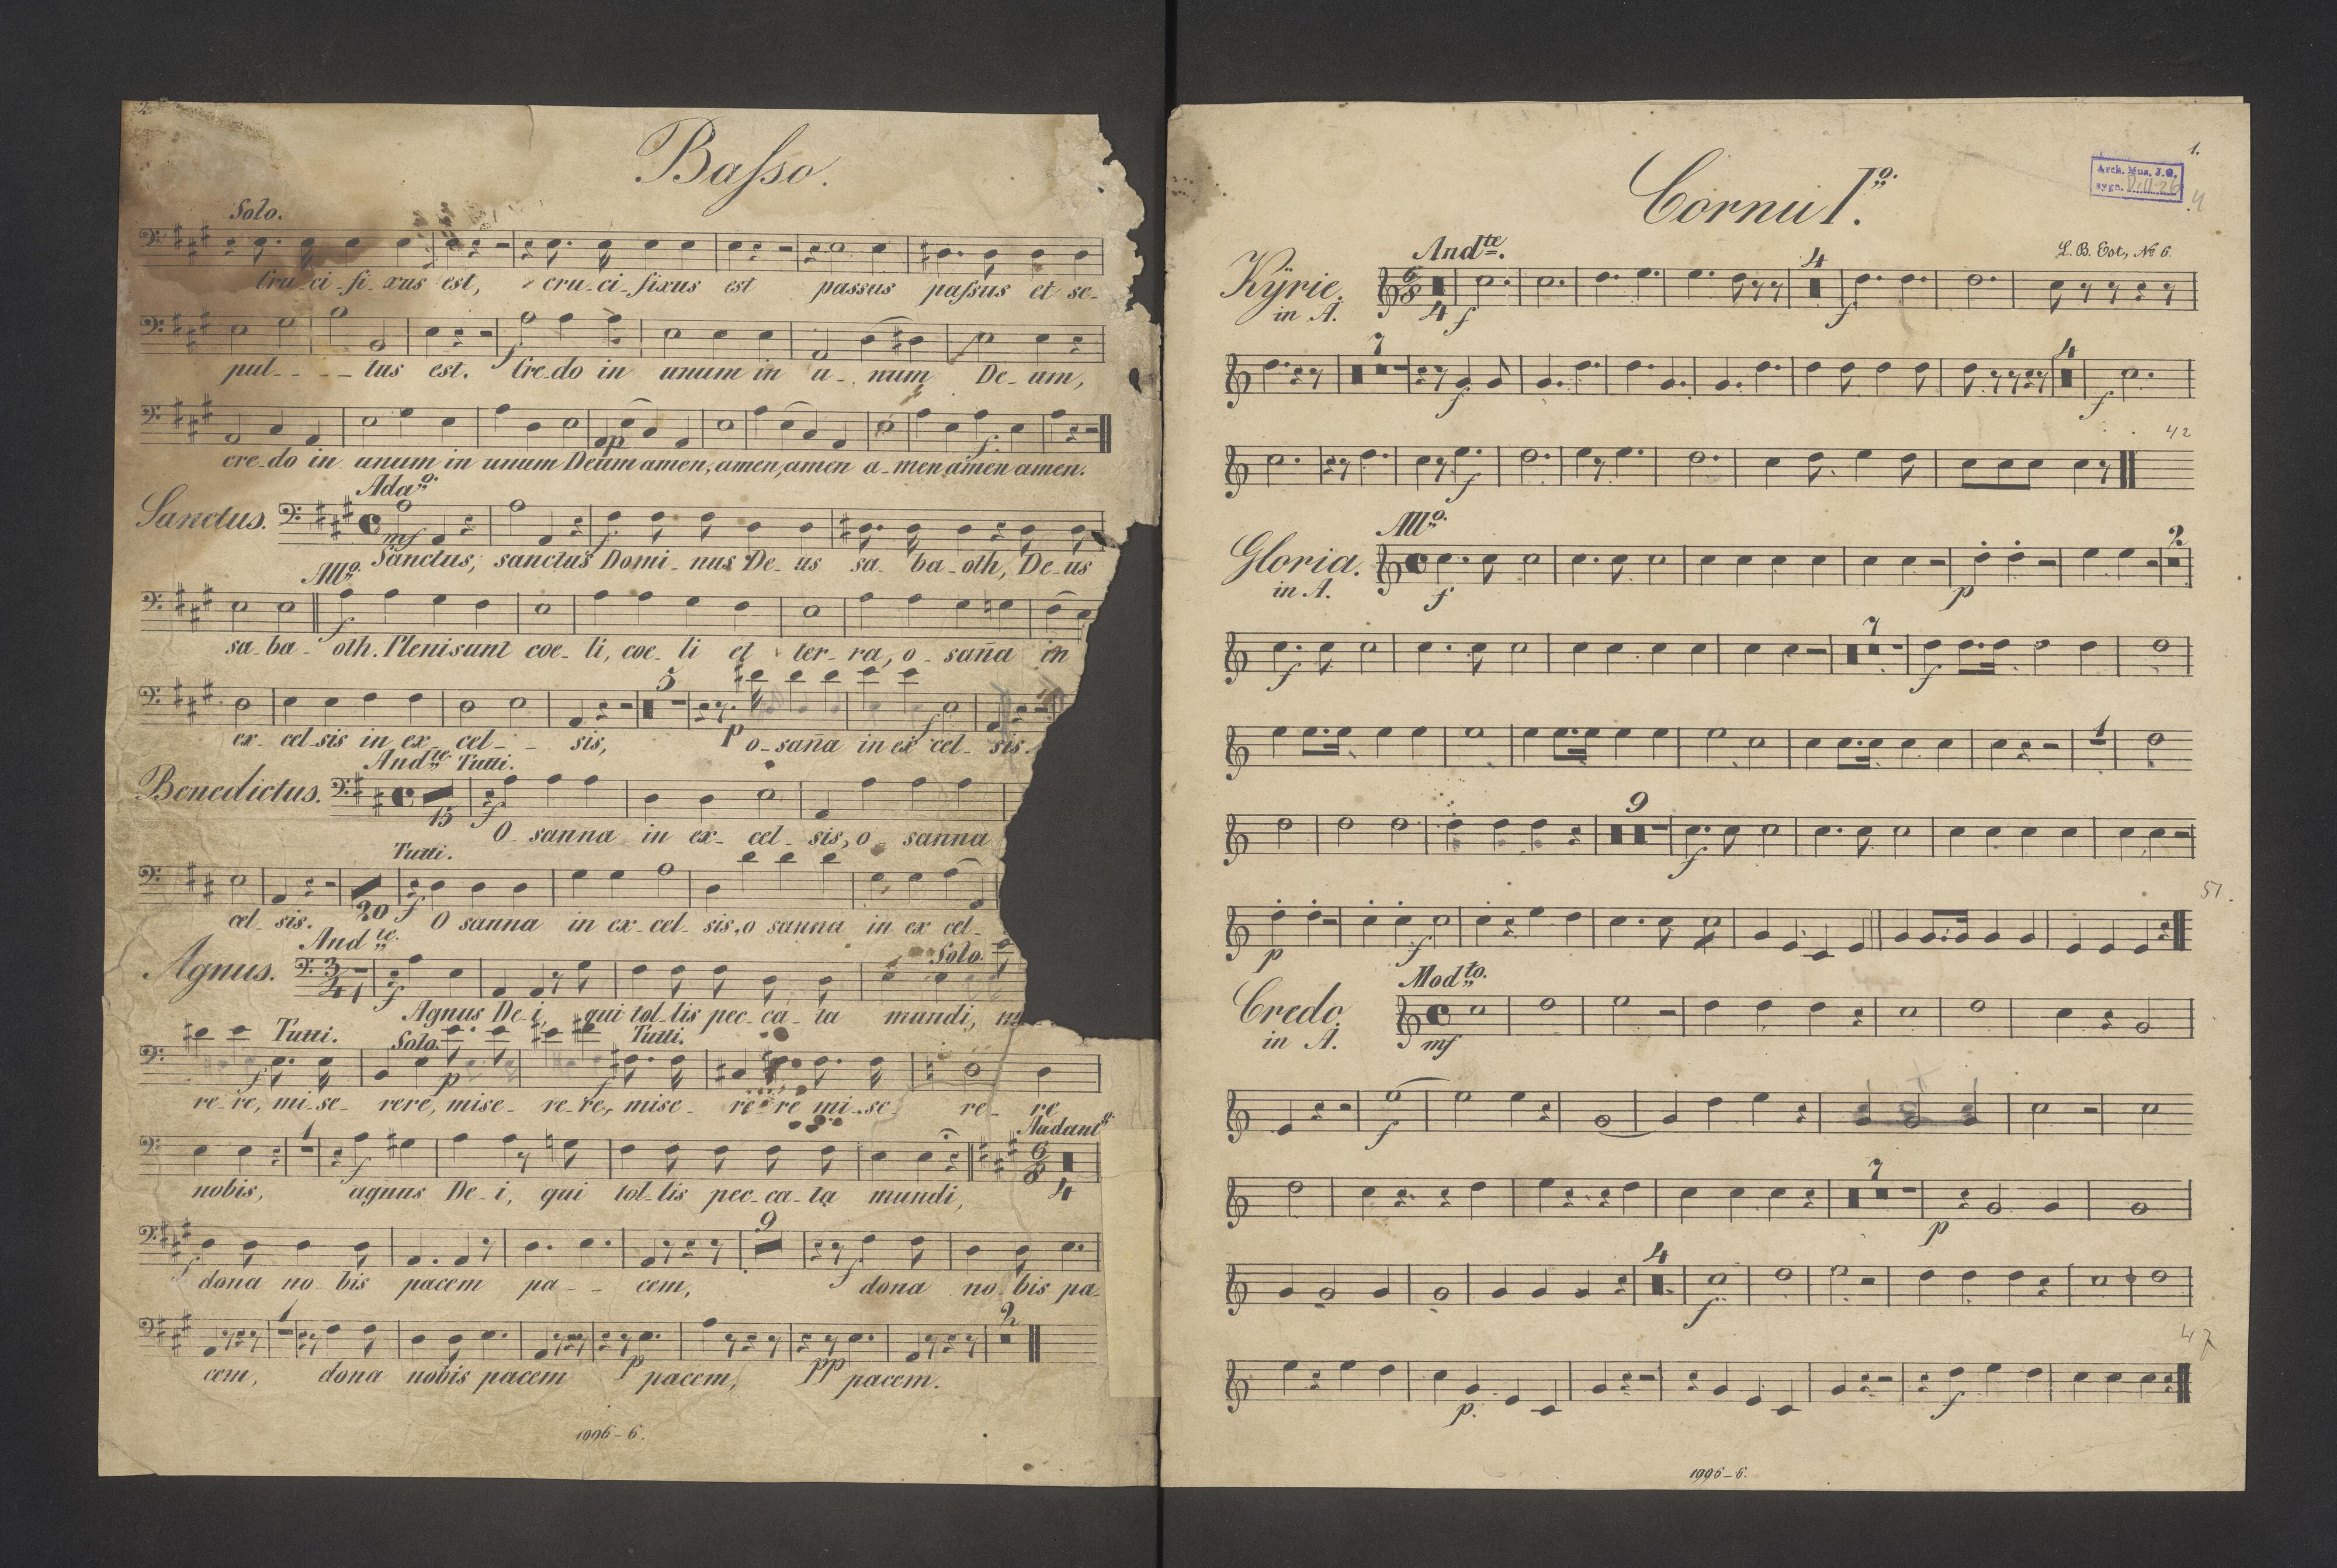 2
Baſso.
Solo.
Cru-ci-fi-xus est, cru-ci-fixus est passus paſsus et se-
pul- - - tus est. Cre-do in unum in u-num De-um,
f
cre-do in unum in unum Deum amen, amen, amen a-men amen amen.
p f.
Sanctus. Adaº.
mf f
Sanctus, sanctus Domi-nus De-us sa-ba-oth, De-us
Allº.
f
sa-ba-oth. Pleni sunt coe-li, coe-li et ter-ra, o-san̄a in
5
p f
ex-cel-sis in ex-cel- - sis, o-san̄a in ex cel-sis.
Benedictus. Andte Tutti.
15 f
O-sanna in ex-cel-sis, o-sanna
Tutti.
20 f
cel-sis. O sanna in ex-cel-sis, o sanna in ex cel-
Agnus. Andte. Solo.
3/4 1 f
Agnus De-i, qui tol-lis pec-ca-ta mundi,
Tutti. Solo. Tutti.
f p f
re-re, mi-se-rere, mise-re-re, mise-re-re mi-se-re-re
1 f 6/8 4
nobis, agnus De-i, qui tol-lis pec-ca-ta mundi,
9
f f
dona no-bis pacem pa- - cem, dona no-bis pa-
1 2
p pp
cem, dona nobis pacem pacem, pacem.
1996-6.
1.
Arch. Mus. J.G.
sygn.
Cornu Iº.
L. B. Est, Nº 6.
Kÿrie. in A. Andte.
6/8 4 f 4 f
7 f 4 f
42
f
Gloria. in A. Allº.
f p 2
f 7 f
1
9 f
51.
p f
Credo. in A. Modto.
mf
f
7 p
4 f
47
p. f
1996-6.